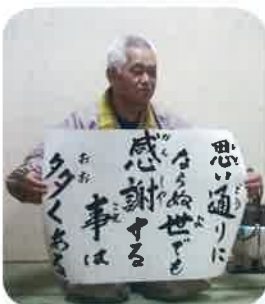 思い通りに
ならぬ世でも
感謝する
事は
多々くある